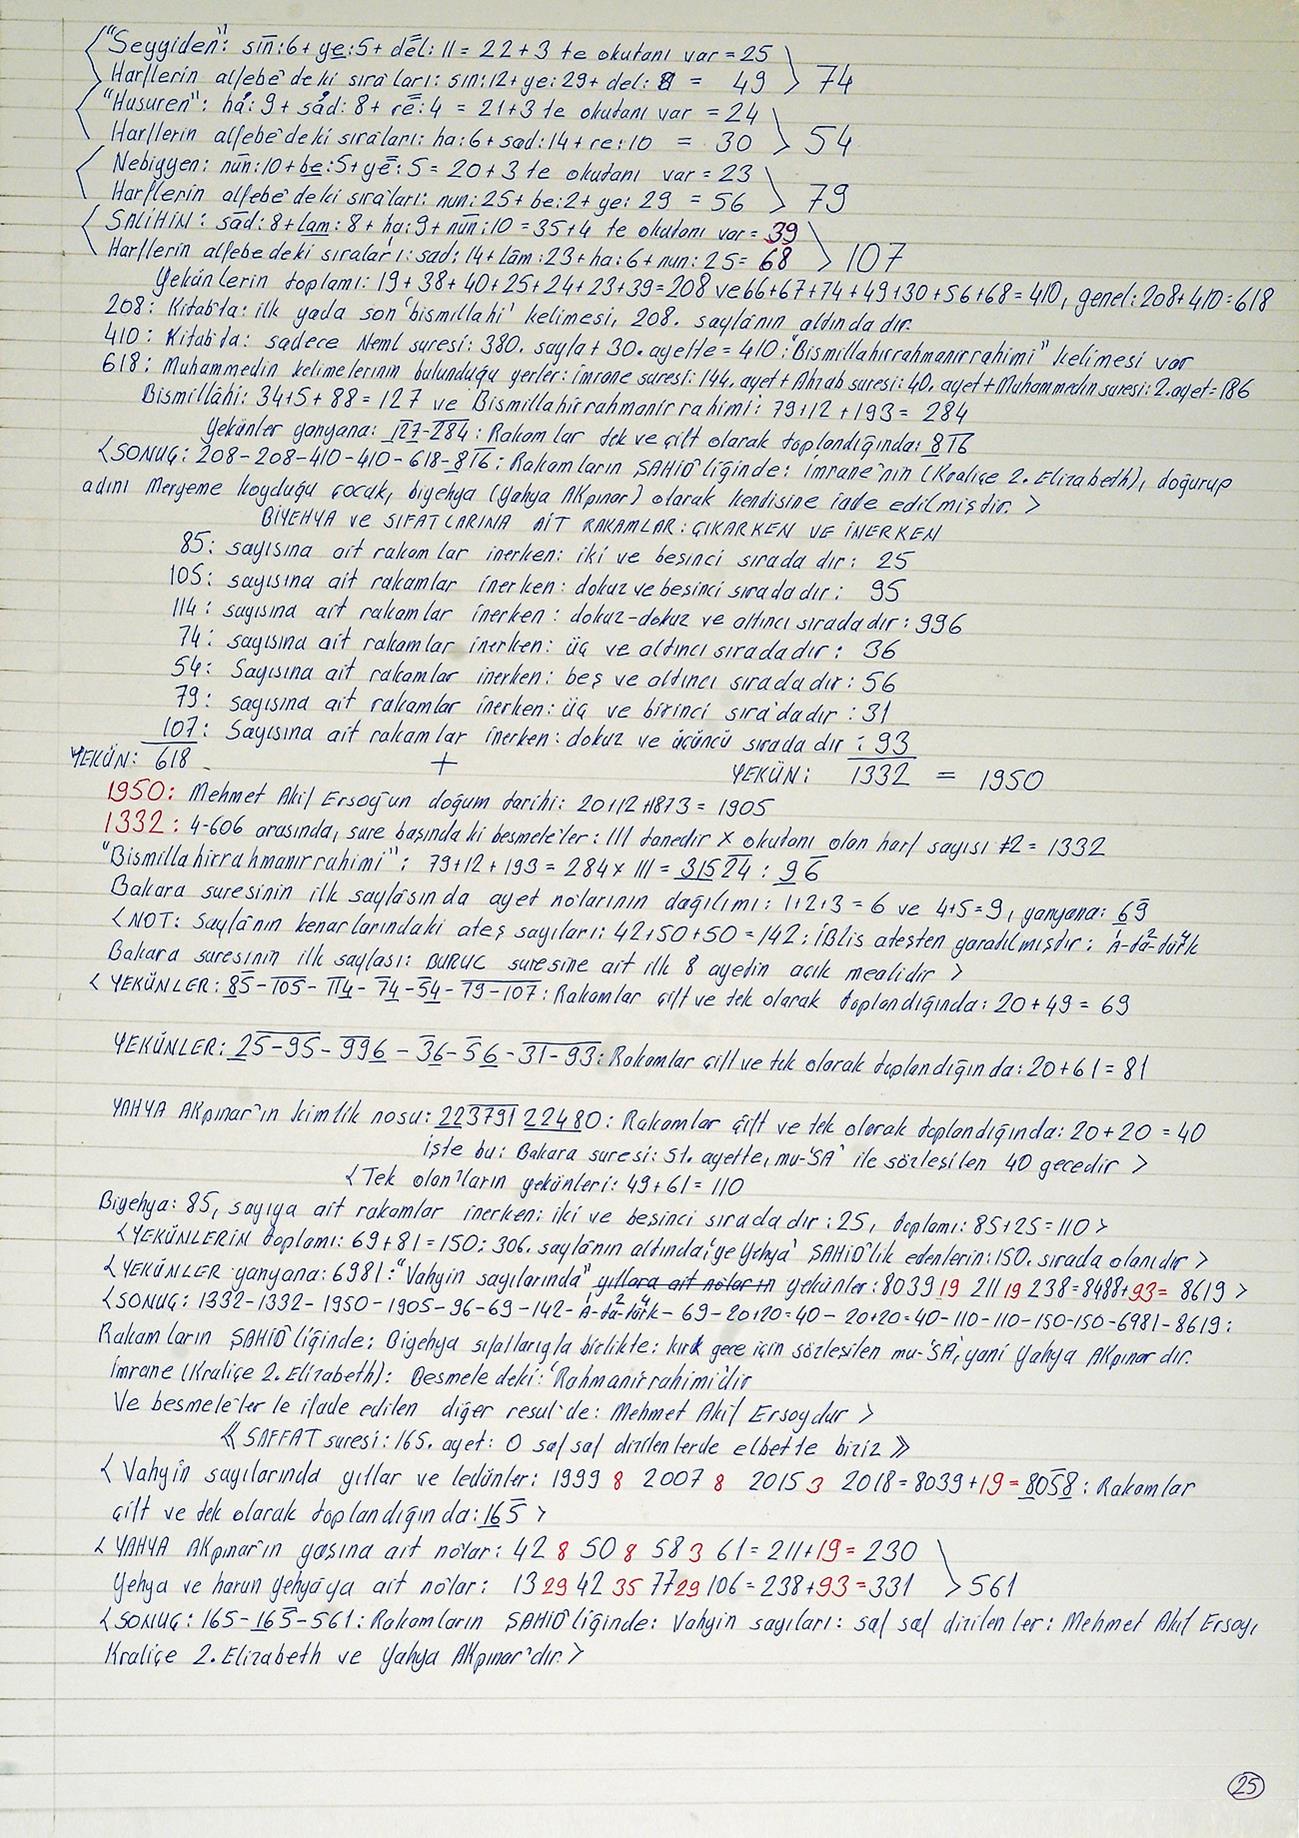 "Seyyiden": sin:6+ye:5+del:11=22+3 te okutanı var=25
Harflerin alfebe'deki sıraları: sin:12+ye:29+del:8 = 49 > 74
"Husuren": ha:9+sad:8+re:4=21+3 te okutanı var=24
Harflerin alfebe'deki sıraları: ha:6+sad:14+re:10 = 30 > 54
Nebiyyen: nun:10+be:5+ye:5=20+3 te okutanı var=23
Harflerin alfebe'deki sıraları: nun:25+be:2+ye:29=56 > 79
SALİHİN: sâd:8+lam:8+ha:9+nün:10=35+4 te okutanı var=39
Harflerin alfebedeki sıraları: sad:14+lâm:23+ha:6+nun:25=68 > 107
Yekünlerin toplamı: 19+38+40+25+24+23+39=208 ve 66+67+74+49+30+56+68=410, genel:208+410=618
208: Kitab'ta: ilk yada son 'bismillahi' kelimesi, 208. sayfânın altındadır.
410: Kitab'da: sadece Neml suresi: 380. sayfa+30. ayette=410: "Bismillahirrahmanirrahimi" kelimesi var
618: Muhammedin kelimelerinin bulunduğu yerler: imrane suresi:144. ayet+Ahzab suresi:40. ayet+Muhammedin suresi:2.ayet=186
Bismillâhi: 34+5+88=127 ve Bismillahirrahmanirrahimi: 79+12+193=284
Yekünler yanyana: 127-284: Rakamlar tek ve çift olarak toplandığında: 816
<SONUÇ: 208-208-410-410-618-816: Rakamların ŞAHİD'liğinde: İmrane'nin (Kraliçe 2. Elizabeth), doğurup
adını Meryeme koyduğu çocuk, biyehya (Yahya AKpınar) olarak kendisine iade edilmiştir. >
BİYEHYA ve SIFATLARINA AİT RAKAMLAR: ÇIKARKEN VE İNERKEN
85: sayısına ait rakamlar inerken: iki ve beşinci sıradadır: 25
105: sayısına ait rakamlar inerken: dokuz ve beşinci sıradadır: 95
114: sayısına ait rakamlar inerken: dokuz-dokuz ve altıncı sıradadır: 996
74: sayısına ait rakamlar inerken: üç ve altıncı sıradadır: 36
54: Sayısına ait rakamlar inerken: beş ve altıncı sıradadır: 56
79: sayısına ait rakamlar inerken: üç ve birinci sıra'dadır: 31
107: Sayısına ait rakamlar inerken: dokuz ve üçüncü sıradadır: 93
YEKÜN: 618 + YEKÜN: 1332 = 1950
1950: Mehmet Akif Ersoy'un doğum tarihi: 20+12+1873=1905
1332: 4-606 arasında, sure başında ki besmele'ler: 111 tanedir x okutanı olan harf sayısı 12=1332
"Bismillahirrahmanirrahimi": 79+12+193=284x111=31524: 96
Bakara suresinin ilk sayfâsında ayet nolarının dağılımı: 1+2+3=6 ve 4+5=9, yanyana: 69
<NOT: Sayfânın kenarlarındaki ateş sayıları: 42+50+50=142: İBlis ateşten yaratılmıştır: A-da-türk
Bakara suresinin ilk sayfası: BURUC suresine ait ilk 8 ayetin açık mealidir >
< YEKÜNLER: 85-105-114-74-54-79-107: Rakamlar çift ve tek olarak toplandığında: 20+49=69
YEKÜNLER: 25-95-996-36-56-31-93: Rakamlar çift ve tek olarak toplandığında: 20+61=81
YAHYA AKpınar'ın kimlik nosu: 22379122480: Rakamlar çift ve tek olarak toplandığında: 20+20=40
işte bu: Bakara suresi: 51. ayette, mu-'SA' ile sözleşilen 40 gecedir >
<Tek olan'ların yekünleri: 49+61=110
Biyehya: 85, sayıya ait rakamlar inerken: iki ve beşinci sıradadır: 25, toplamı: 85+25=110>
<YEKÜNLERİN toplamı: 69+81=150: 306. sayfânın altında: 'ye Yehya' ŞAHİD'lik edenlerin: 150. sırada olanıdır >
< YEKÜNLER yanyana: 6981: "Vahyin sayılarında" yıllara ait nolar'ın yekünler: 8039 19 211 19 238=8488+93= 8619 >
<SONUÇ: 1332-1332-1950-1905-96-69-142-A-da-türk-69-20+20=40-20+20=40-110-110-150-150-6981-8619:
Rakamların ŞAHİD'liğinde: Biyehya sıfatlarıyla birlikte: kırk gece için sözleşilen mu-'SA', yani Yahya AKpınar dır.
İmrane (Kraliçe 2. Elizabeth): Besmele deki: 'Rahmanirrahimi'dir
Ve besmele'ler le ifade edilen diğer resul'de: Mehmet Akif Ersoydur >
≪ SAFFAT suresi: 165. ayet: O saf saf dizilenlerde elbette biziz ≫
< Vahyin sayılarında yıllar ve ledünler: 1999 8 2007 8 2015 3 2018=8039+19=8058: Rakamlar
çift ve tek olarak toplandığında: 165 >
< YAHYA AKpınar'ın yaşına ait no'lar: 42 8 50 8 58 3 61=211+19=230
Yehya ve harun Yehyâ'ya ait no'lar: 13 29 42 35 77 29 106=238+93=331 > 561
<SONUÇ: 165-165-561: Rakamların ŞAHİD'liğinde: Vahyin sayıları: saf saf dizilenler: Mehmet Akif Ersoy,
Kraliçe 2. Elizabeth ve Yahya AKpınar'dır. >
25